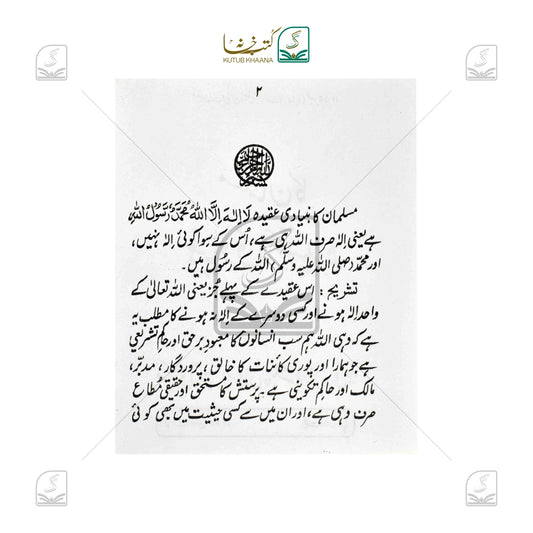 کتب خانہ
KUTUB KHAANA
۲
مسلمان کا بنیادی عقیدہ لَا اِلٰہَ اِلَّا اللّٰہُ مُحَمَّدٌ رَّسُوْلُ اللّٰہِ
ہے یعنی اِلٰہ صرف اللہ ہی ہے، اُس کے سوا کوئی اِلٰہ نہیں،
اور محمد (صلی اللہ علیہ وسلم) اللہ کے رسُول ہیں۔
تشریح : اس عقیدے کے پہلے جُز یعنی اللہ تعالیٰ کے
واحد اِلٰہ ہونے اور کسی دوسرے کے اِلٰہ نہ ہونے کا مطلب یہ
ہے کہ وہی اللہ ہم سب انسانوں کا معبودِ برحق اور حاکم تشریعی
ہے جو ہمارا اور پوری کائنات کا خالق، پروردگار، مدبّر،
مالک اور حاکم تکوینی ہے۔ پرستش کا مُستحق اور حقیقی مُطاع
صرف وہی ہے، اور ان میں سے کسی حیثیت میں بھی کوئی